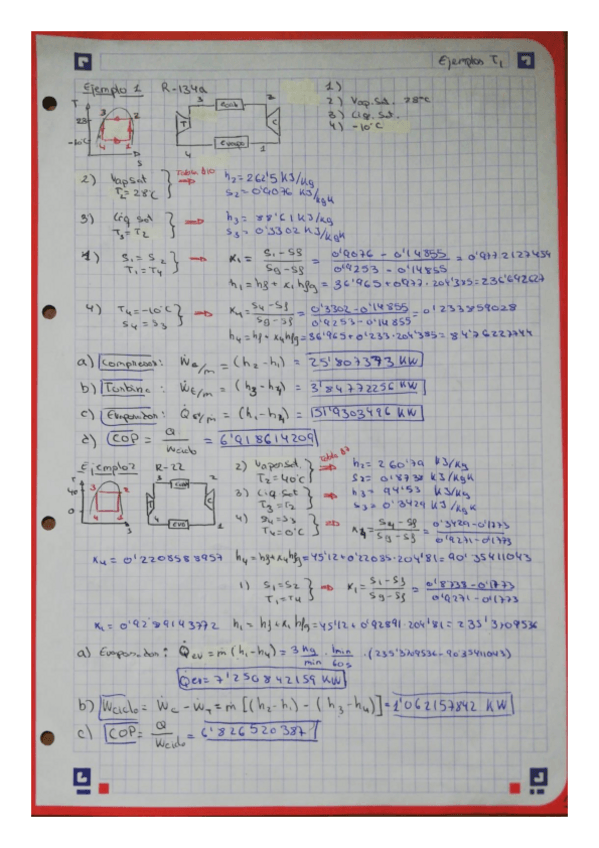 Ejemplos T1
Ejemplo 1 R-134a
1)
2) Vap.Sat. 28ºC
3) Liq. Sat.
4) -10ºC
T
28
-10ºC
3 2
4 1
S
3 Cond 2
T C
4 Evapo 1
2) Vap Sat
T2 = 28ºC
Tabla B10
h2 = 262'5 KJ/Kg
s2 = 0'9076 KJ/KgK
3) Liq. sat
T3 = T2
h3 = 88'61 KJ/Kg
s3 = 0'3302 KJ/KgK
1) s1 = s2
T1 = T4
x1 = s1 - sf / sg - sf = 0'9076 - 0'14855 / 0'9253 - 0'14855 = 0'9772127454
h1 = hf + x1 hfg = 36'965 + 0'977 · 204'385 = 236'692627
4) T4 = -10ºC
s4 = s3
x4 = s4 - sf / sg - sf = 0'3302 - 0'14855 / 0'9253 - 0'14855 = 0'2333859028
h4 = hf + x4 hfg = 36'965 + 0'233 · 204'385 = 84'76227744
a) Compresor: Ẇc/ṁ = (h2 - h1) = 25'807373 KW
b) Turbina: Ẇt/ṁ = (h3 - h4) = 3'84772256 KW
c) Evaporador: Q̇ev/ṁ = (h1 - h4) = 151'9303496 KW
d) COP = Q / Wciclo = 6'918614209
Ejemplo 2 R-22
T
40
0
3 2
4 1
S
3 Cond 2
T C
4 Eva 1
2) Vapor Sat.
T2 = 40ºC
Tabla B7
h2 = 260'79 KJ/Kg
s2 = 0'8738 KJ/KgK
3) Liq Sat
T3 = T2
h3 = 94'53 KJ/Kg
s3 = 0'3429 KJ/KgK
4) s4 = s3
T4 = 0ºC
x4 = s4 - sf / sg - sf = 0'3429 - 0'1773 / 0'9271 - 0'1773
x4 = 0'2208588957 h4 = hf + x4 hfg = 45'12 + 0'22085 · 204'81 = 90'35411043
1) s1 = s2
T1 = T4
x1 = s1 - sf / sg - sf = 0'8738 - 0'1773 / 0'9271 - 0'1773
x1 = 0'9289143772 h1 = hf + x1 hfg = 45'12 + 0'92891 · 204'81 = 235'3709536
a) Evaporador: Q̇ev = ṁ (h1 - h4) = 3 kg / min · 1min / 60s · (235'3709536 - 90'35411043)
Q̇ev = 7'250842159 KW
b) Ẇciclo = Ẇc - ẆT = ṁ [(h2 - h1) - (h3 - h4)] = 1'062157842 KW
c) COP = Q / Wciclo = 6'826520387